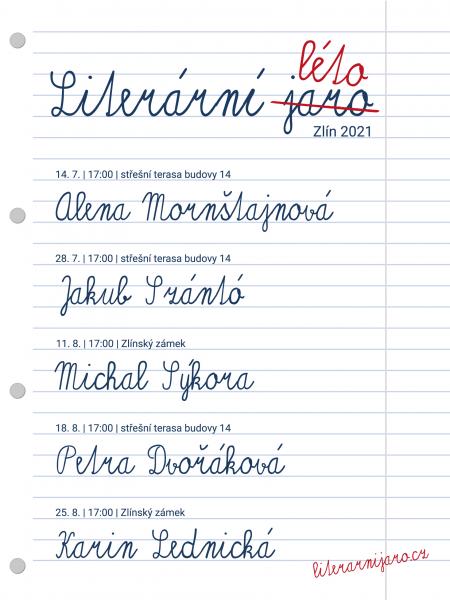 léto
Literární jaro
Zlín 2021
14. 7. | 17:00 | střešní terasa budovy 14
Alena Mornštajnová
28. 7. | 17:00 | střešní terasa budovy 14
Jakub Szántó
11. 8. | 17:00 | Zlínský zámek
Michal Sýkora
18. 8. | 17:00 | střešní terasa budovy 14
Petra Dvořáková
25. 8. | 17:00 | Zlínský zámek
Karin Lednická
literarnijaro.cz